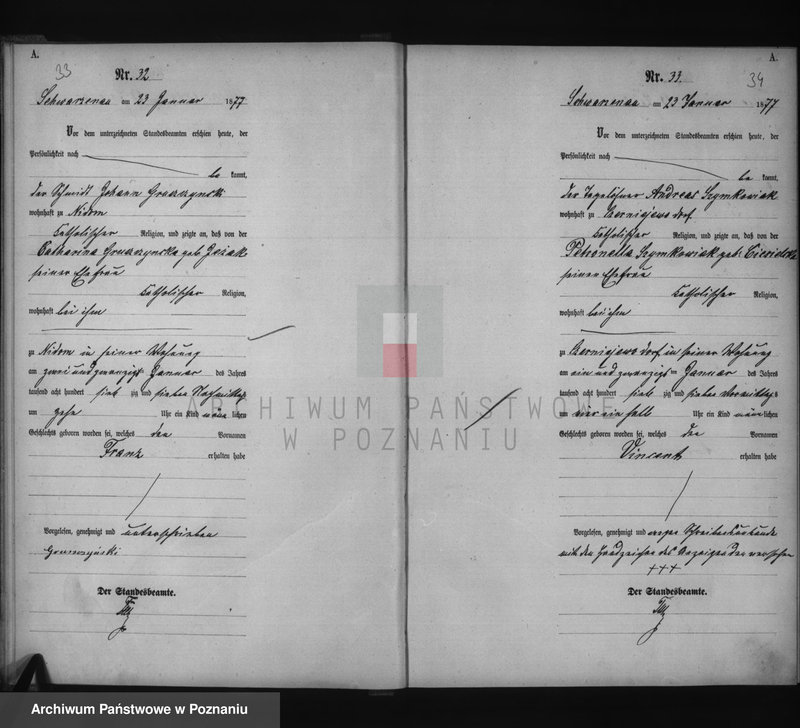 A.
33
Nr. 32
Schwarzenau am 23 Januar 1877
Vor dem unterzeichneten Standesbeamten erschien heute, der
Persönlichkeit nach
be kannt,
der Schmidt Johann Gruszynski
wohnhaft zu Nidom
katholischer Religion, und zeigte an, daß von der
Catharina Gruszynska geb.
seiner Ehefrau
katholischer Religion,
wohnhaft bei ihm
zu Nidom in seiner Wohnung
am zwei und zwanzigsten Januar des Jahres
tausend acht hundert sieb zig und sieben Nachmittags
um Uhr ein Kind männ lichen
Geschlechts geboren worden sei, welches den Vornamen
Franz erhalten habe
Vorgelesen, genehmigt und unterschrieben
Der Standesbeamte.
A.
34
Nr. 33.
Schwarzenau am 23 Januar 1877
Vor dem unterzeichneten Standesbeamten erschien heute, der
Persönlichkeit nach
be kannt,
der Tagelöhner Andreas Szymkowiak
wohnhaft zu Czerniejewo dorf
katholischer Religion, und zeigte an, daß von der
Petronella Szymkowiak geb. Cievielska
seiner Ehefrau
katholischer Religion,
wohnhaft bei ihm
zu Czerniejewo dorf in seiner Wohnung
am ein und zwanzigsten Januar des Jahres
tausend acht hundert sieb zig und sieben Vormittags
um vier ein halb Uhr ein Kind männ lichen
Geschlechts geboren worden sei, welches den Vornamen
Vincent erhalten habe
Vorgelesen, genehmigt und wegen Schreibensunkunde
mit den Handzeichen des Anzeigenden versehen
+++
Der Standesbeamte.
ARCHIWUM PAŃSTWOWE
W POZNANIU
Archiwum Państwowe w Poznaniu